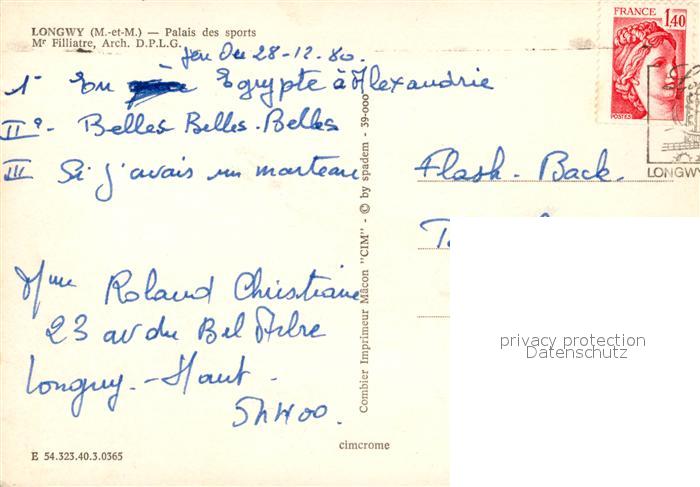 LONGWY (M.-et-M.) — Palais des sports
Mr Filliatre, Arch. D.P.L.G.
Jeu Du 28-12-80.
1° En Egypte à Alexandrie
II°- Belles Belles-Belles
III Si j'avais un marteau
Mme Roland Christiane
23 av du Bel Arbre
Longwy-Haut.
54400.
E 54.323.40.3.0365
cimcrome
Combier Imprimeur Mâcon "CIM" - © by spadem - 39-000
FRANCE
1,40
POSTES
LONGWY
Flash-Back.
privacy protection
Datenschutz